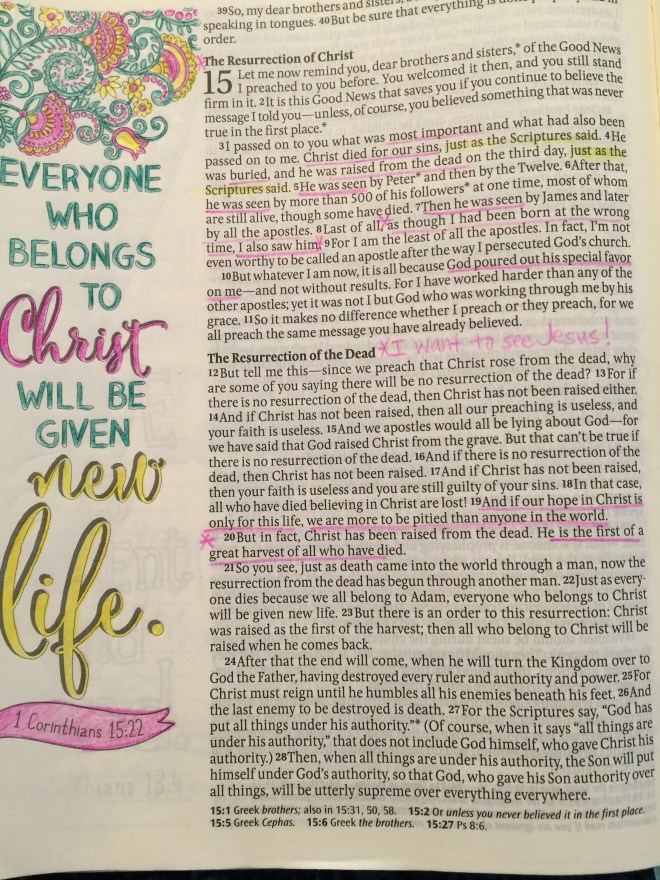 39So, my dear brothers and sisters,
speaking in tongues. 40But be sure that everything is
order.
The Resurrection of Christ
15 Let me now remind you, dear brothers and sisters,* of the Good News
I preached to you before. You welcomed it then, and you still stand
firm in it. 2It is this Good News that saves you if you continue to believe the
message I told you—unless, of course, you believed something that was never
true in the first place.*
3I passed on to you what was most important and what had also been
passed on to me. Christ died for our sins, just as the Scriptures said. 4He
was buried, and he was raised from the dead on the third day, just as the
Scriptures said. 5He was seen by Peter* and then by the Twelve. 6After that,
he was seen by more than 500 of his followers* at one time, most of whom
are still alive, though some have died. 7Then he was seen by James and later
by all the apostles. 8Last of all, as though I had been born at the wrong
time, I also saw him. 9For I am the least of all the apostles. In fact, I'm not
even worthy to be called an apostle after the way I persecuted God's church.
10But whatever I am now, it is all because God poured out his special favor
on me—and not without results. For I have worked harder than any of the
other apostles; yet it was not I but God who was working through me by his
grace. 11So it makes no difference whether I preach or they preach, for we
all preach the same message you have already believed.
The Resurrection of the Dead *I want to see Jesus!
12But tell me this—since we preach that Christ rose from the dead, why
are some of you saying there will be no resurrection of the dead? 13For if
there is no resurrection of the dead, then Christ has not been raised either.
14And if Christ has not been raised, then all our preaching is useless, and
your faith is useless. 15And we apostles would all be lying about God—for
we have said that God raised Christ from the grave. But that can't be true if
there is no resurrection of the dead. 16And if there is no resurrection of the
dead, then Christ has not been raised. 17And if Christ has not been raised,
then your faith is useless and you are still guilty of your sins. 18In that case,
all who have died believing in Christ are lost! 19And if our hope in Christ is
only for this life, we are more to be pitied than anyone in the world.
20But in fact, Christ has been raised from the dead. He is the first of a
great harvest of all who have died.
21So you see, just as death came into the world through a man, now the
resurrection from the dead has begun through another man. 22Just as every-
one dies because we all belong to Adam, everyone who belongs to Christ
will be given new life. 23But there is an order to this resurrection: Christ
was raised as the first of the harvest; then all who belong to Christ will be
raised when he comes back.
24After that the end will come, when he will turn the Kingdom over to
God the Father, having destroyed every ruler and authority and power. 25For
Christ must reign until he humbles all his enemies beneath his feet. 26And
the last enemy to be destroyed is death. 27For the Scriptures say, "God has
put all things under his authority."* (Of course, when it says "all things are
under his authority," that does not include God himself, who gave Christ his
authority.) 28Then, when all things are under his authority, the Son will put
himself under God's authority, so that God, who gave his Son authority over
all things, will be utterly supreme over everything everywhere.
15:1 Greek brothers; also in 15:31, 50, 58. 15:2 Or unless you never believed it in the first place.
15:5 Greek Cephas. 15:6 Greek the brothers. 15:27 Ps 8:6.
EVERYONE
WHO
BELONGS
TO
Christ
WILL BE
GIVEN
new
life.
1 Corinthians 15:22